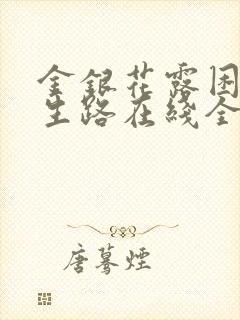 金銀花露困
生路在綫全
唐驀煙